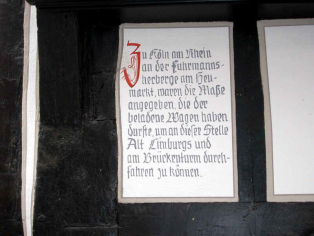 Zu Köln am Rhein
an der Fuhrmanns-
herberge am Heu-
markt, waren die Maße
angegeben, die der
beladene Wagen haben
durfte, um an dieser Stelle
Alt Limburgs und
am Brückenturm durch-
fahren zu können.